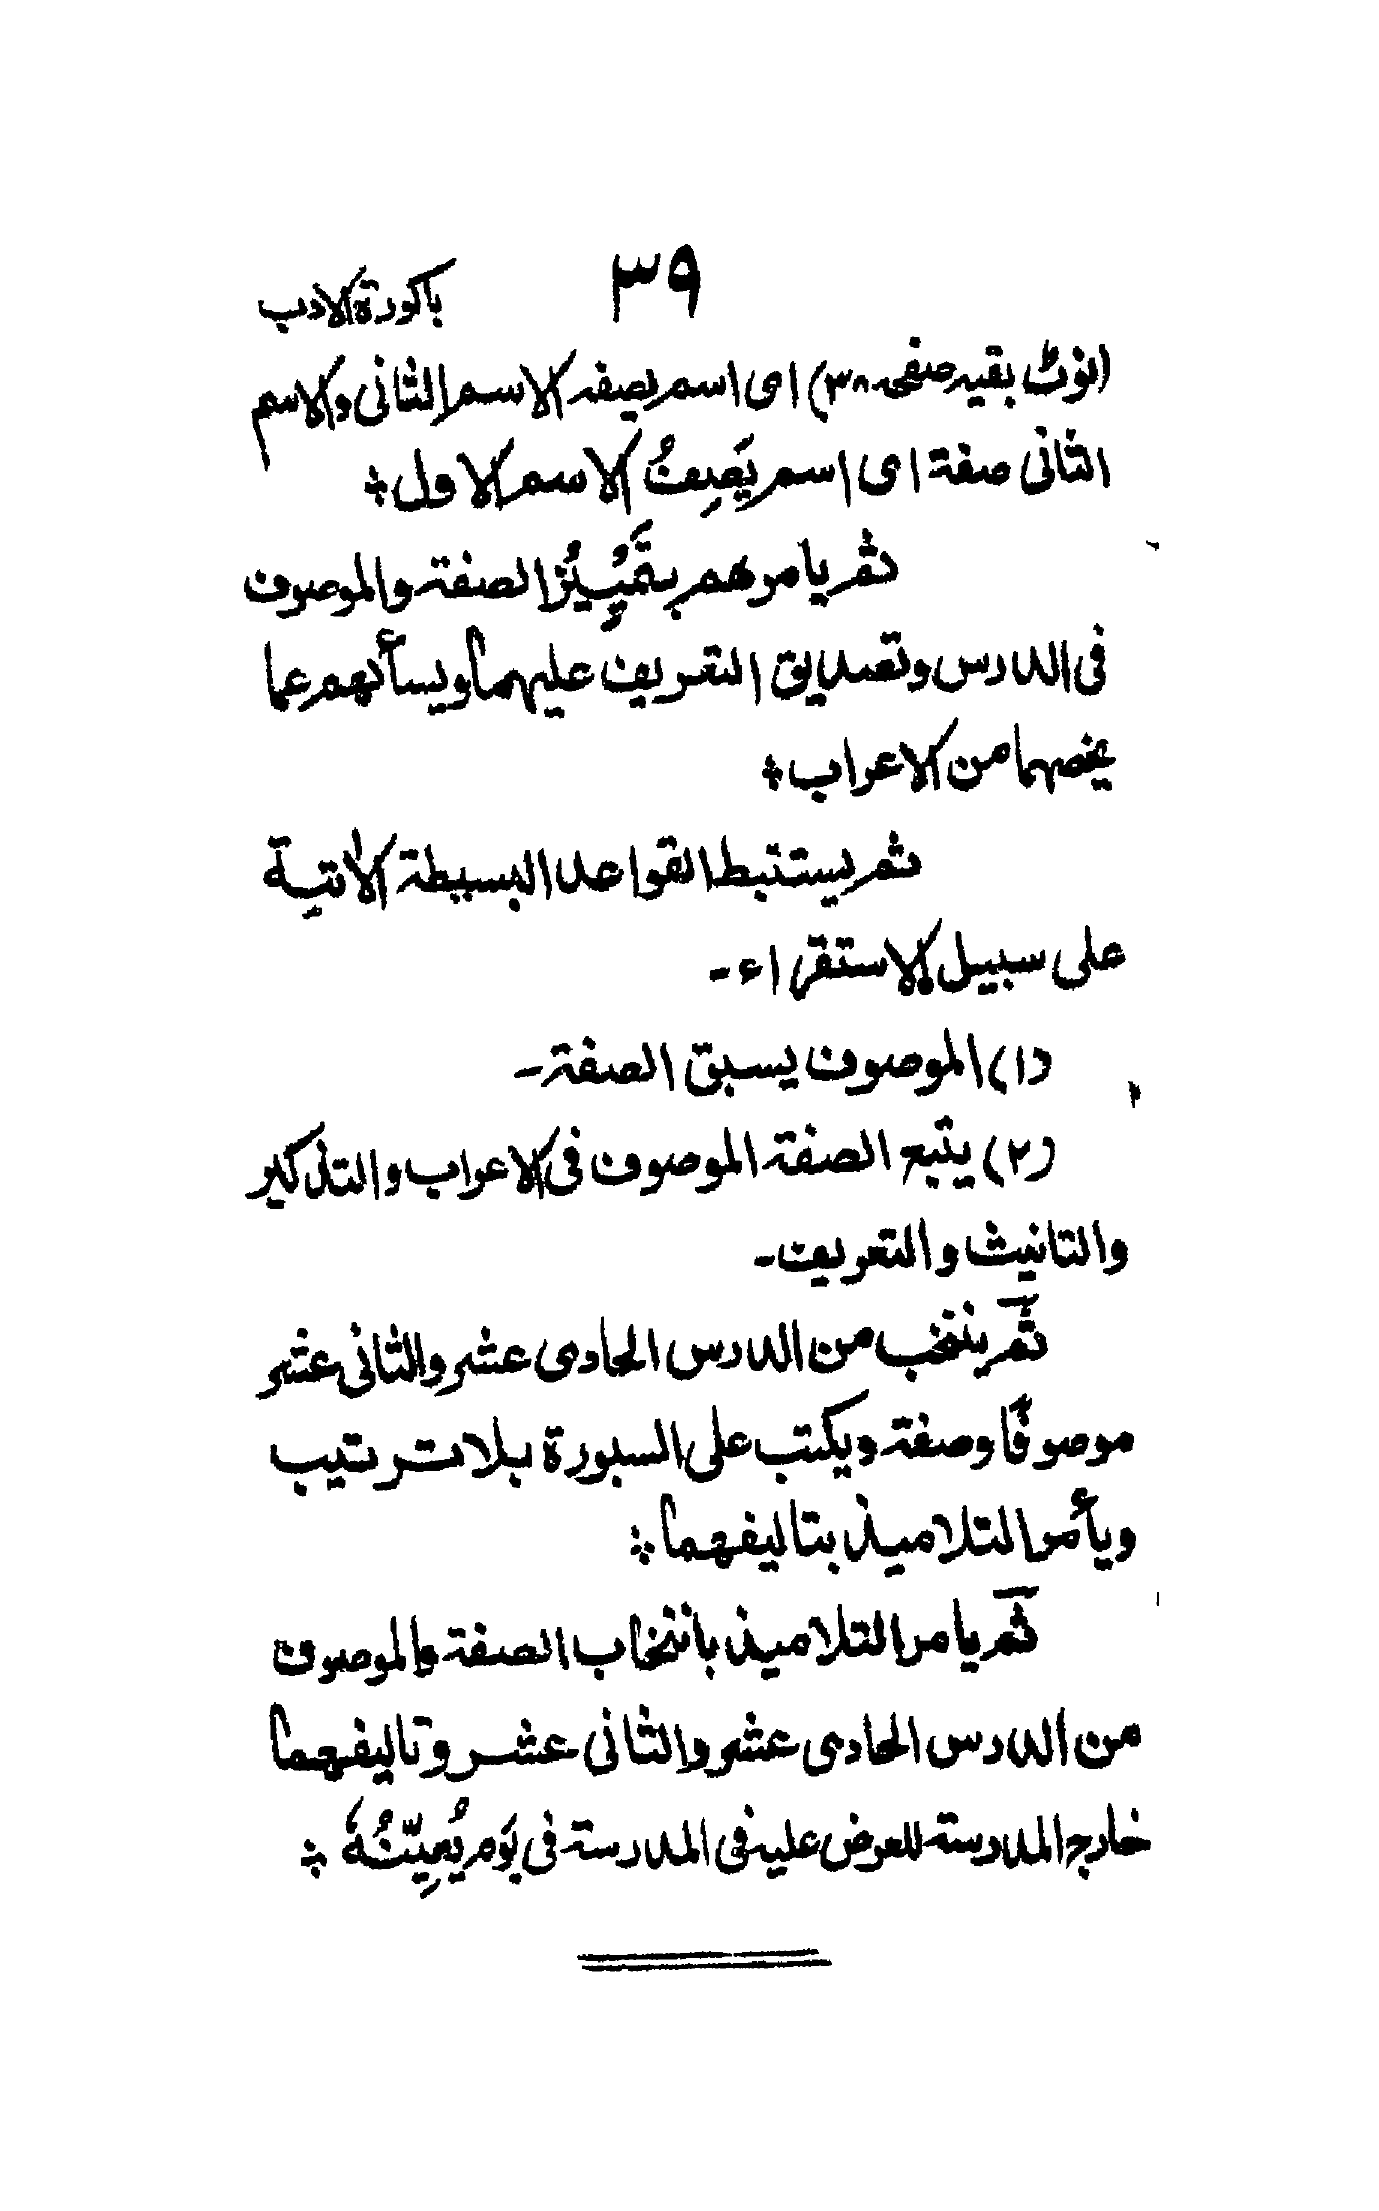 ٣٩ باكورة الادب
(نوٹ بقيه صفحه ٣٨) اى اسم يصفه الاسم الثانى والاسم
الثانى صفة اى اسم يَصِفُ الاسم الاول ÷
ثم يامرهم بتَمْيِيْزِ الصفة والموصوف
فى الدرس وتصديق التعريف عليهما ويسألهم عما
يخصهما من الاعراب ÷
ثم يستنبط القواعد البسيطة الاٰتية
على سبيل الاستقراء -
(١) الموصوف يسبق الصفة -
(٢) يتبع الصفة الموصوف فى الاعراب والتذكير
والتانيث والتعريف -
ثم ينتخب من الدرس الحادى عشر والثانى عشر
موصوفًا وصفة ويكتب على السبورة بلا ترتيب
ويأمر التلاميذ بتاليفهما ÷
ثم يامر التلاميذ بانتخاب الصفة والموصوف
من الدرس الحادى عشر والثانى عشر وتاليفهما
خارج المدرسة للعرض عليه فى المدرسة فى يَوْم يُعيِّنُهٗ ÷